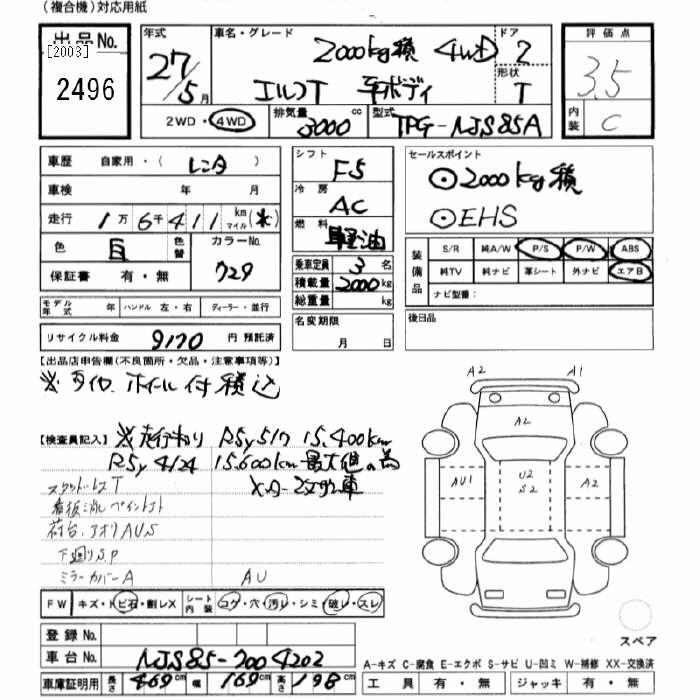 (複合機)対応用紙
出品No.
[2003]
2496
年式
27/5月
車名・グレード
2000kg積 4WD
エルフT 平ボディ
ドア
2
形状
T
2WD・4WD
排気量
3000cc
型式
TPG-NJS85A
評価点
3.5
内装
C
車歴 自家用・(レンタ)
車検 年 月
走行 1万6千411 km マイル(※)
色 白 色替
カラーNo.
729
保証書 有・無
モデル年式 年 ハンドル 左・右 ディーラー・並行
リサイクル料金 9170 円 預託済
シフト
F5
冷房
AC
燃料
軽油
乗車定員 3 名
積載量 2000 kg
総重量 kg
名変期限
月 日
セールスポイント
◎2000kg積
◎EHS
装備品
S/R 純A/W P/S P/W ABS
純TV 純ナビ 革シート 外ナビ エアB
ナビ型番:
後日品
【出品店申告欄(不良箇所・欠品・注意事項等)】
※タイヤ、ホイール付積込
【検査員記入】 ※走行わり R5y 5/17 15,400km
R5y 4/24 15,600km 最大値の為
メーター改ざん車
スタッドレスT
看板消し ペイント
荷台、アオリAUS
下廻りS,P
ミラーカバーA AU
FW キズ・ト ビ石・割レX
シート内装 コゲ・穴・汚レ・シミ・破レ・スレ
A2 A1
A2
AU1
U2
S2
A2
スペア
登録No.
車台No. NJS85-7004202
車庫証明用 長さ 469cm 幅 169cm 高さ 198cm
A-キズ C-腐食 E-エクボ S-サビ U-凹ミ W-補修 XX-交換済
工具 有・無 ジャッキ 有・無